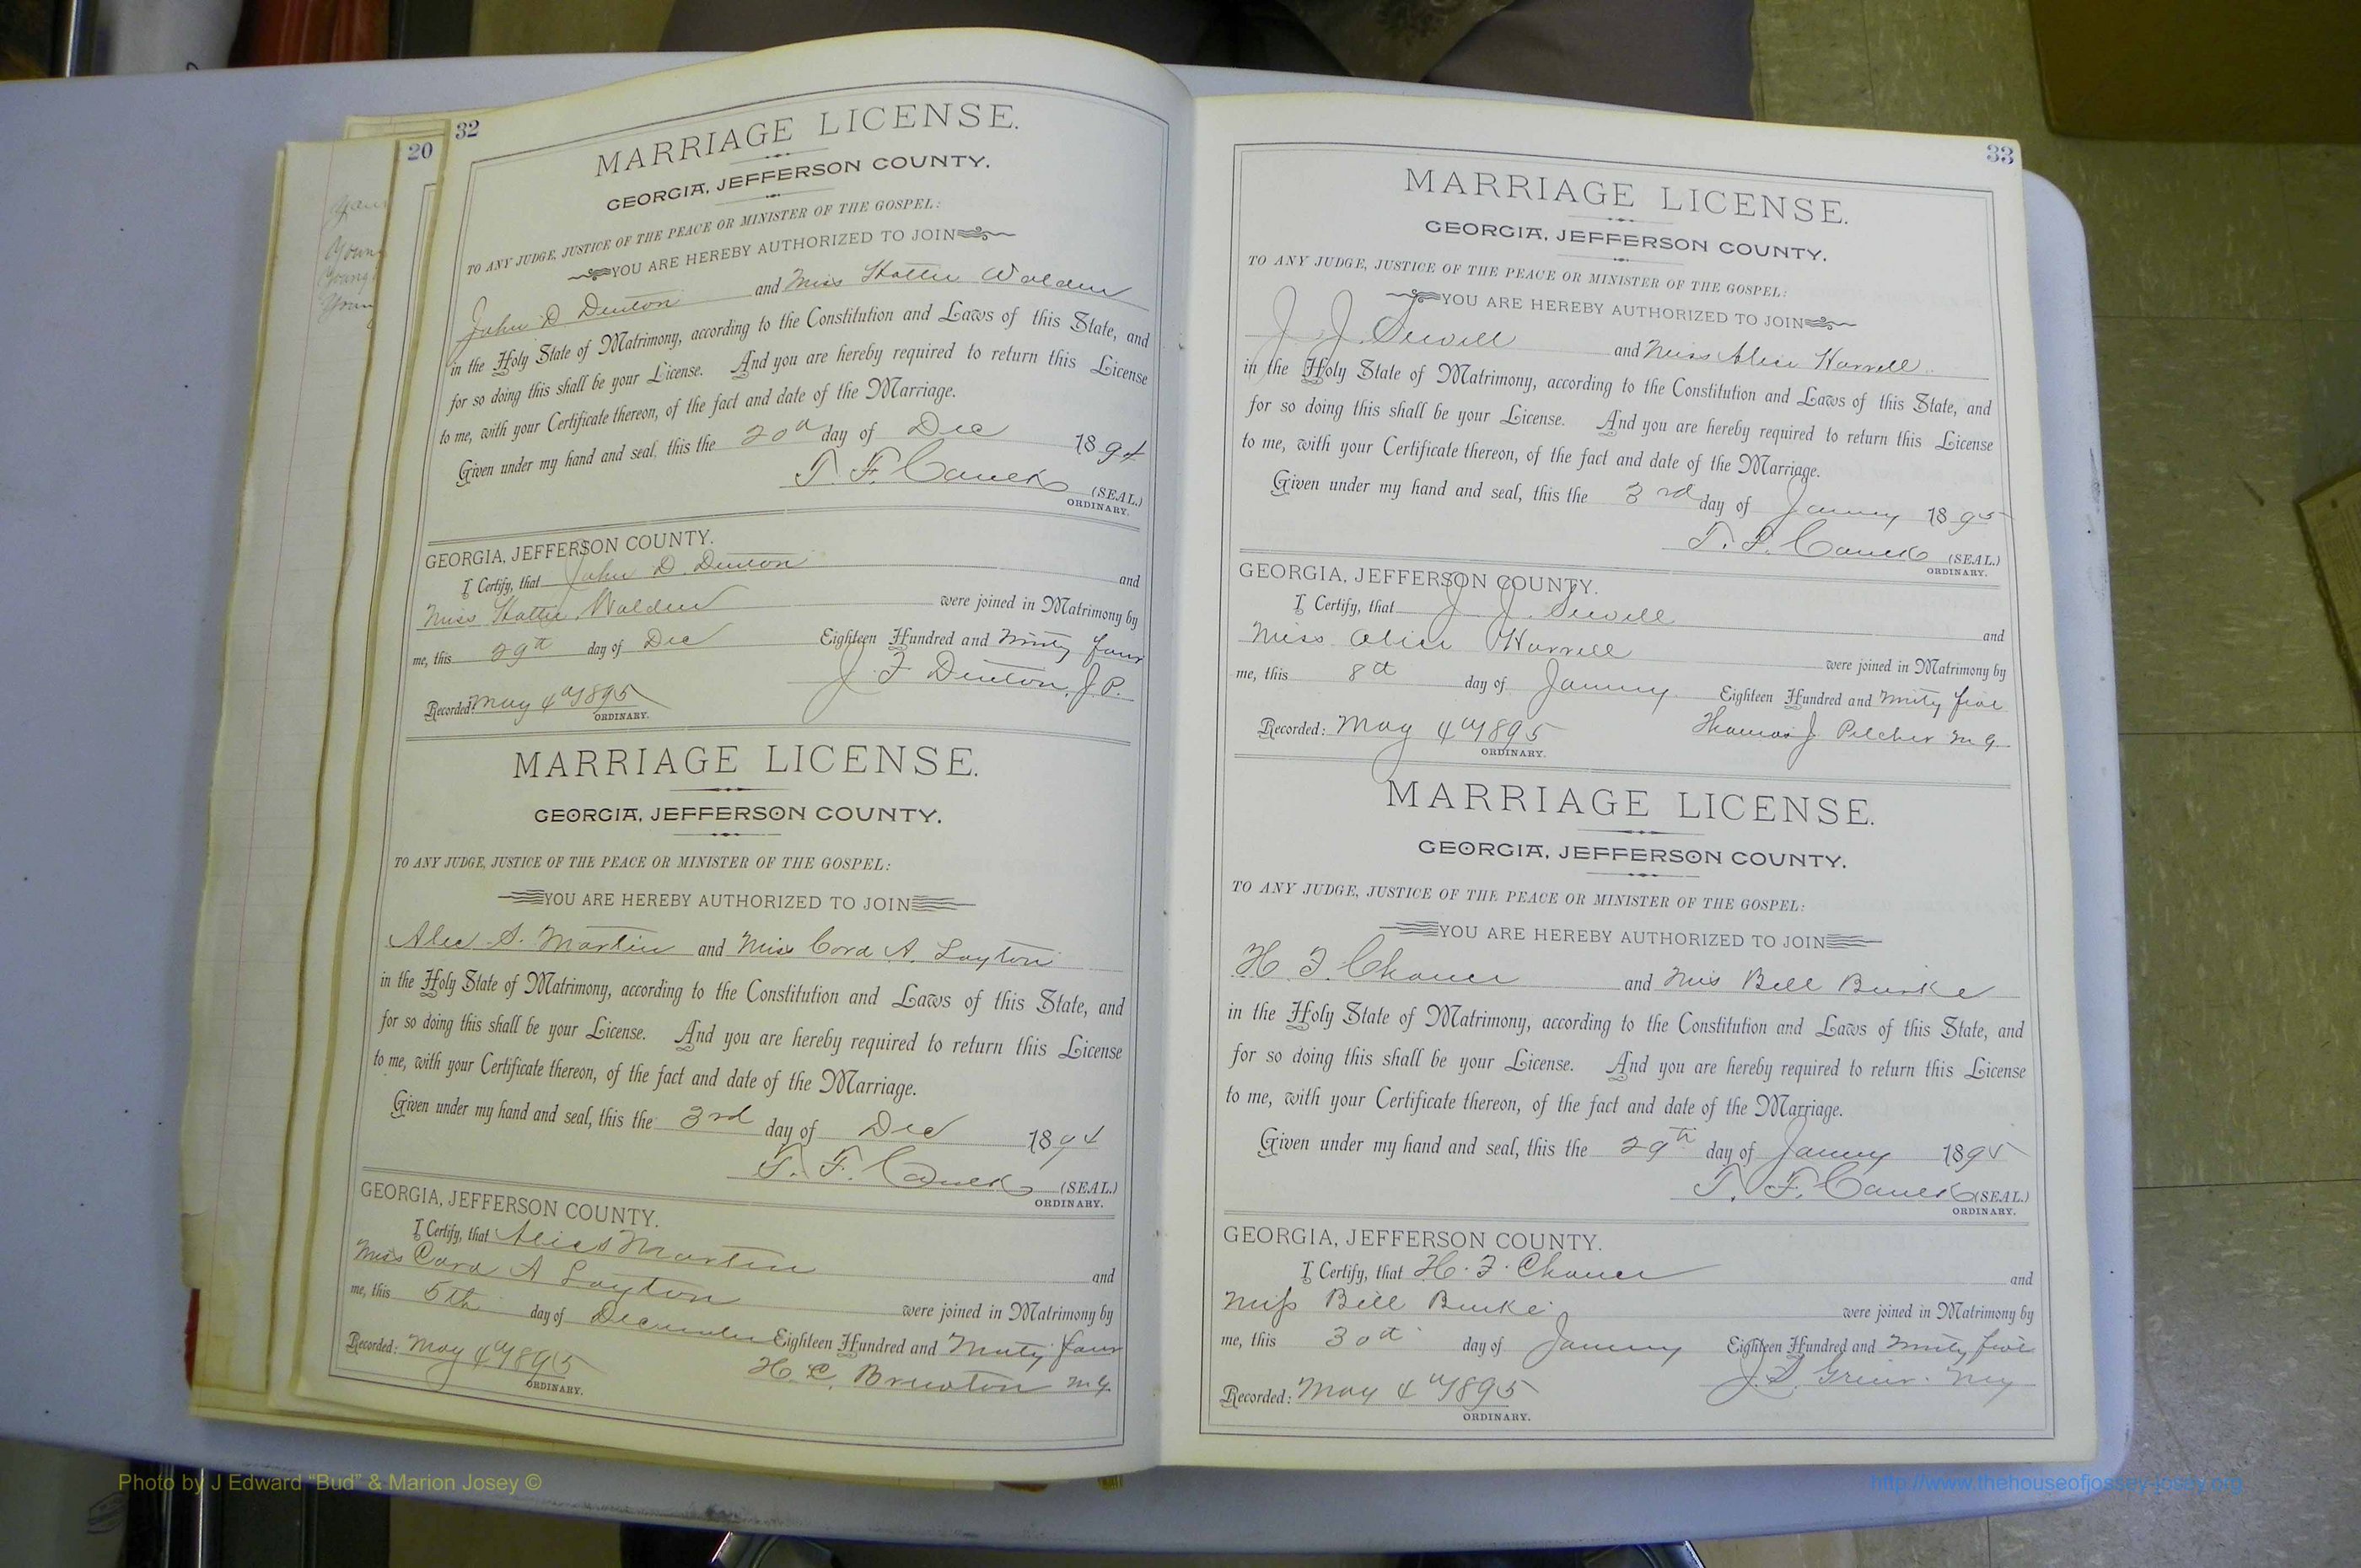 20
32
MARRIAGE LICENSE.
GEORGIA, JEFFERSON COUNTY.
TO ANY JUDGE, JUSTICE OF THE PEACE OR MINISTER OF THE GOSPEL:
YOU ARE HEREBY AUTHORIZED TO JOIN
John D Denton and Miss Hattie Walden
in the Holy State of Matrimony, according to the Constitution and Laws of this State, and
for so doing this shall be your License. And you are hereby required to return this License
to me, with your Certificate thereon, of the fact and date of the Marriage.
Given under my hand and seal, this the 20th day of Dec 1894
T. F. (SEAL.)
ORDINARY.
GEORGIA, JEFFERSON COUNTY.
I Certify, that John D. Denton and
Miss Hattie Walden were joined in Matrimony by
me, this 29th day of Dec Eighteen Hundred and Ninty four
J F Denton, J. P.
Recorded: May 4th 1895
ORDINARY.
MARRIAGE LICENSE.
GEORGIA, JEFFERSON COUNTY.
TO ANY JUDGE, JUSTICE OF THE PEACE OR MINISTER OF THE GOSPEL:
YOU ARE HEREBY AUTHORIZED TO JOIN
Alec S. Martin and Miss Cora A. Layton
in the Holy State of Matrimony, according to the Constitution and Laws of this State, and
for so doing this shall be your License. And you are hereby required to return this License
to me, with your Certificate thereon, of the fact and date of the Marriage.
Given under my hand and seal, this the 3rd day of Dec 1894
T. F. (SEAL.)
ORDINARY.
GEORGIA, JEFFERSON COUNTY.
I Certify, that Alec S Martin and
Miss Cora A Layton were joined in Matrimony by
me, this 5th day of December Eighteen Hundred and Ninty four
H. C. Brewton M. G.
Recorded: May 4th 1895
ORDINARY.
33
MARRIAGE LICENSE.
GEORGIA, JEFFERSON COUNTY.
TO ANY JUDGE, JUSTICE OF THE PEACE OR MINISTER OF THE GOSPEL:
YOU ARE HEREBY AUTHORIZED TO JOIN
J J. Sewell and Miss Alice Harrell
in the Holy State of Matrimony, according to the Constitution and Laws of this State, and
for so doing this shall be your License. And you are hereby required to return this License
to me, with your Certificate thereon, of the fact and date of the Marriage.
Given under my hand and seal, this the 3rd day of January 1895
T. F. (SEAL.)
ORDINARY.
GEORGIA, JEFFERSON COUNTY.
I Certify, that J J. Sewell and
Miss Alice Harrell were joined in Matrimony by
me, this 8th day of January Eighteen Hundred and Ninty five
Thomas J. Pilcher M. G.
Recorded: May 4th 1895
ORDINARY.
MARRIAGE LICENSE.
GEORGIA, JEFFERSON COUNTY.
TO ANY JUDGE, JUSTICE OF THE PEACE OR MINISTER OF THE GOSPEL:
YOU ARE HEREBY AUTHORIZED TO JOIN
H. F. and Miss Bell Burke
in the Holy State of Matrimony, according to the Constitution and Laws of this State, and
for so doing this shall be your License. And you are hereby required to return this License
to me, with your Certificate thereon, of the fact and date of the Marriage.
Given under my hand and seal, this the 29th day of January 1895
T. F. (SEAL.)
ORDINARY.
GEORGIA, JEFFERSON COUNTY.
I Certify, that H. F. and
Miss Bell Burke were joined in Matrimony by
me, this 30th day of January Eighteen Hundred and Ninty five
Recorded: May 4th 1895
ORDINARY.
Photo by J Edward “Bud” & Marion Josey ©
http://www.thehouseofjossey-josey.org